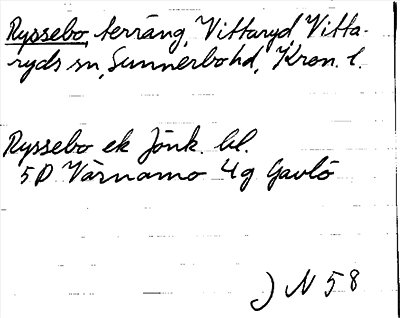 Ryssebo, terräng, Vittaryd, Vitta-
ryds sn, Sunnerbohd, Kron. l.
Ryssebo ek Jönk. bl.
5D Värnamo 4g Gavlö
) N 58